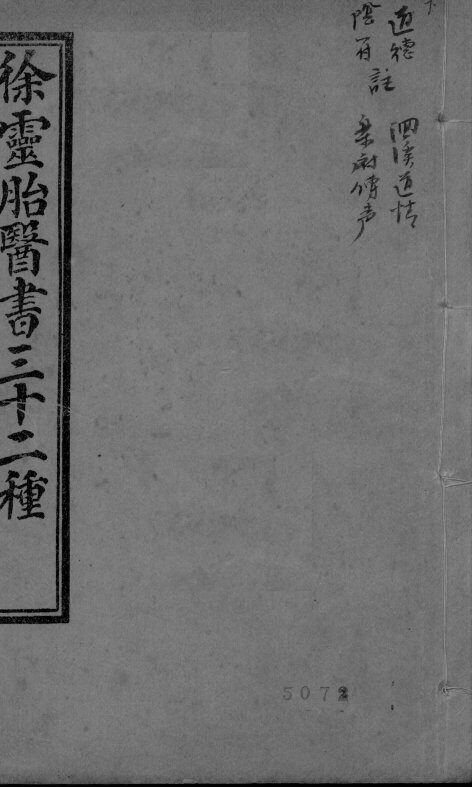 道德　洄溪道情
陰符註　樂府傳声
徐靈胎醫書三十二種
5072